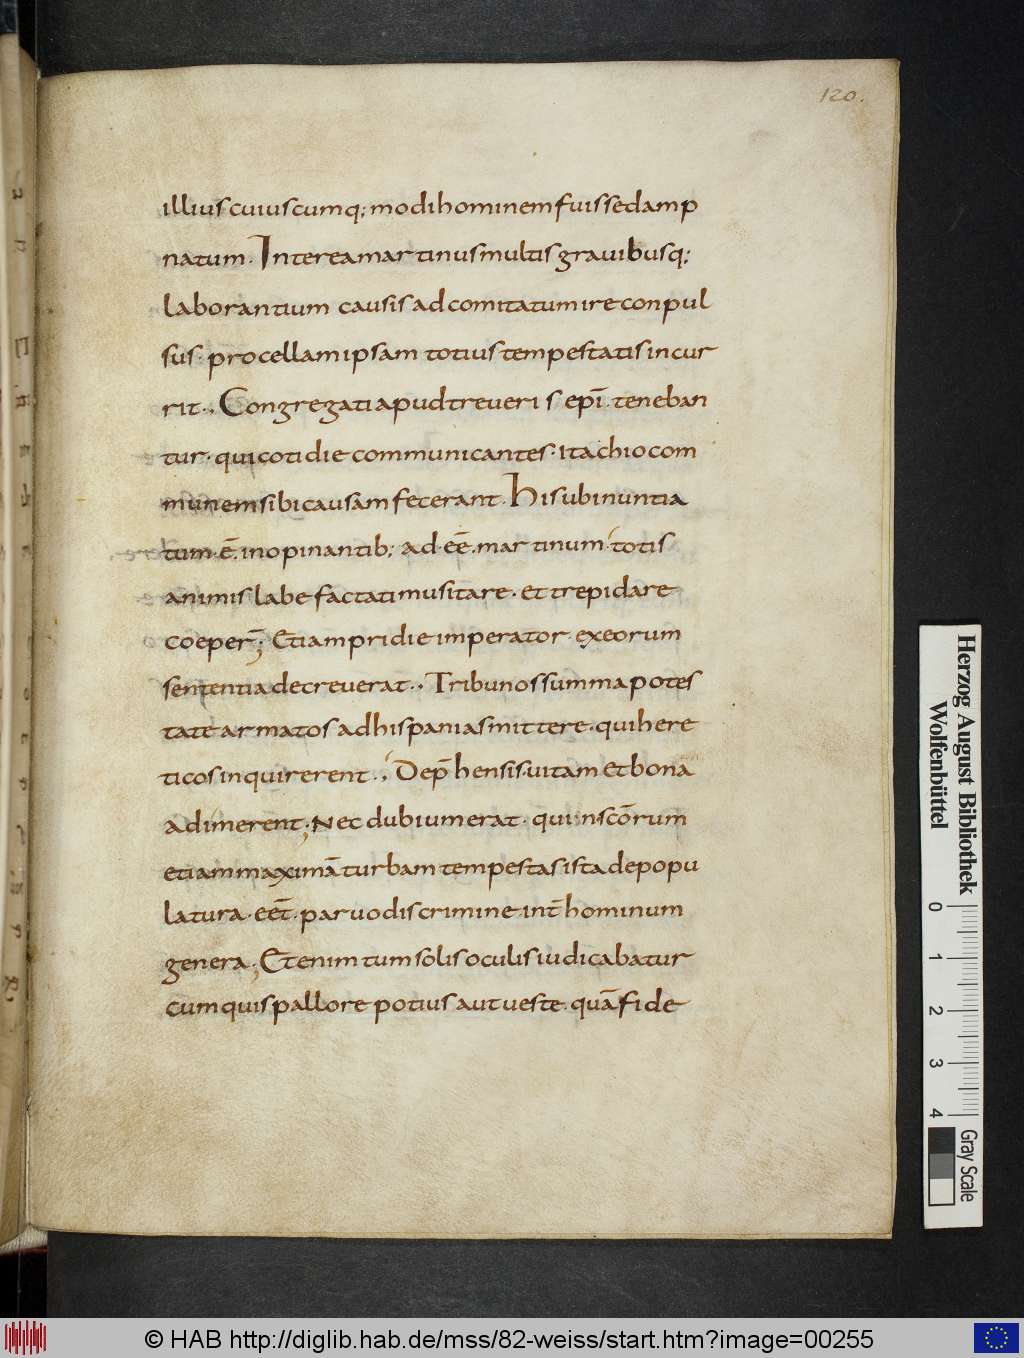 120.
illius cuiuscumq; modi hominem fuisse damp
natum. Interea martinus multis grauibusq;
laborantium causis ad comitatum ire conpul
sus. procellam ipsam totius tempestatis incur
rit., Congregati apud treueri s epī. teneban
tur. qui cotidie communicantes. itachio com
munem sibi causam fecerant. His ubi nuntia
tum. ē. inopinantib; ad eē. martinum totis
animis labefactati musitare. et trepidare
coeper̄; Etiam pridie imperator. ex eorum
sententia decreuerat., Tribunos summa potes
tate armatos ad hispanias mittere. qui here
ticos inquirerent., Dep̄hensis. uitam et bona
adimerent; Nec dubium erat. quin sc̄orum
etiam maximā turbam tempestas ista depopu
latura. eēt. paruo discrimine. int̄ hominum
genera; Etenim tum solis oculis iudicabatur
cum quis pallore potius aut ueste. quā fide
Herzog August Bibliothek
Wolfenbüttel
0 1 2 3 4
Gray Scale
© HAB http://diglib.hab.de/mss/82-weiss/start.htm?image=00255